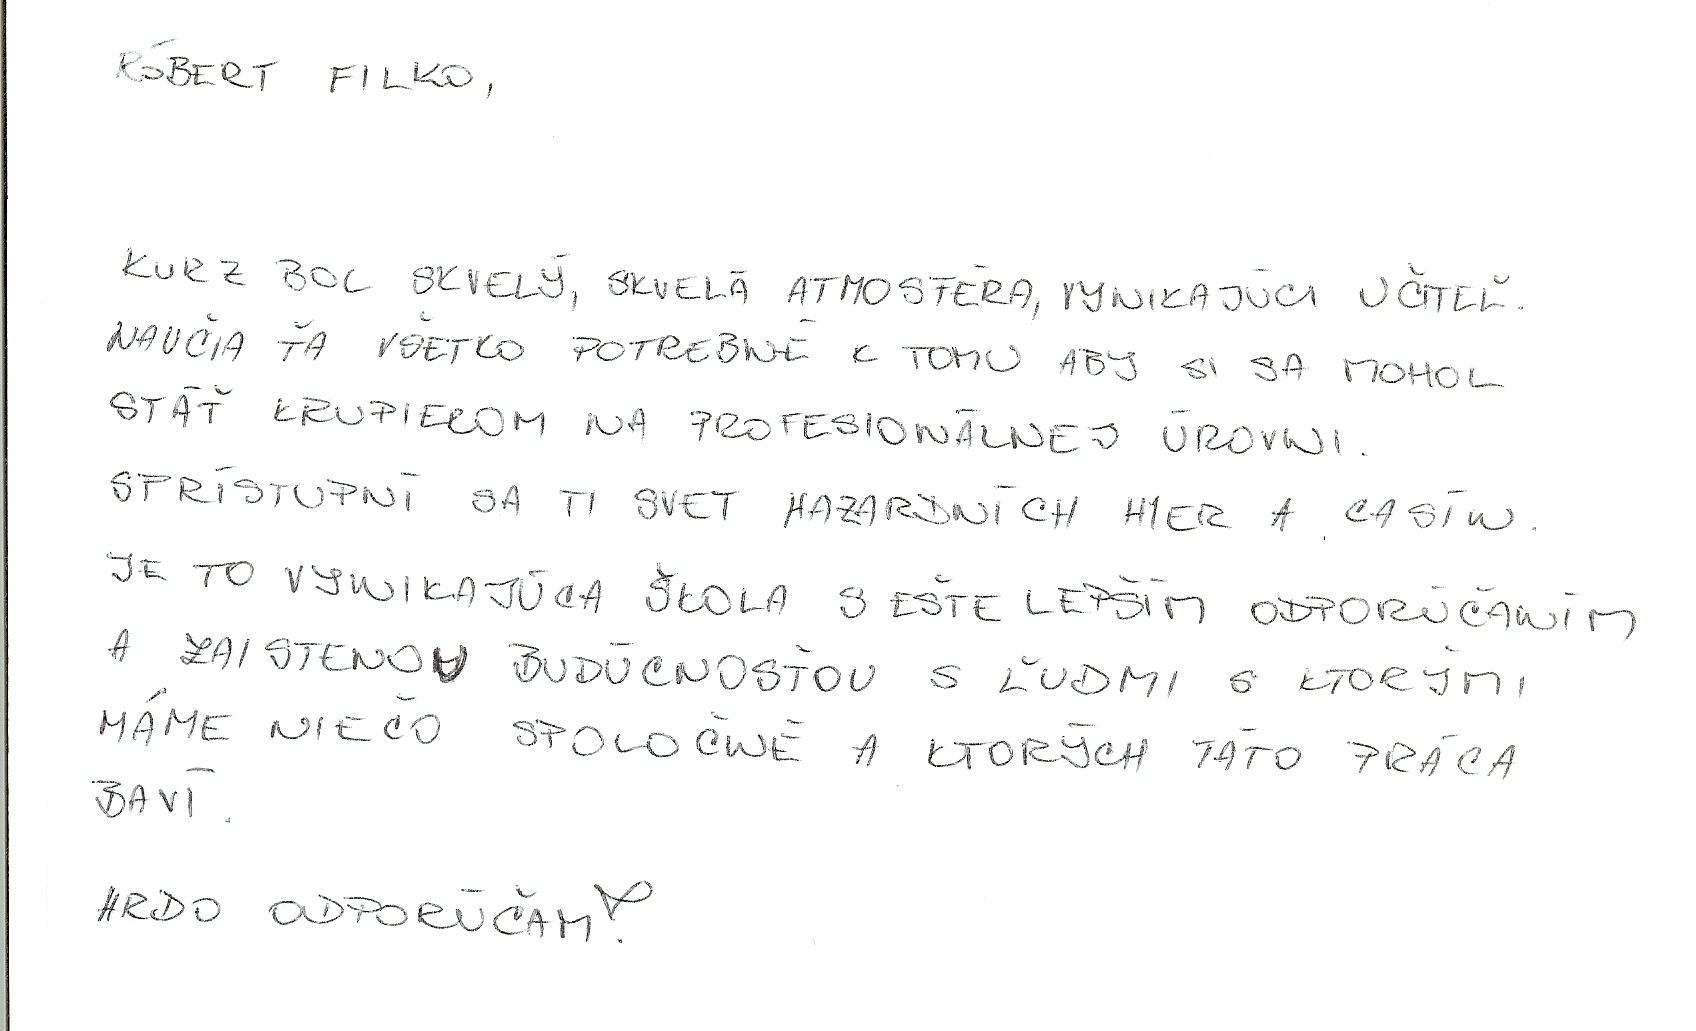 RÓBERT FILKO,
KURZ BOL SKVELÝ, SKVELÁ ATMOSFÉRA, VYNIKAJÚCI UČITEĽ.
NAUČIA ŤA VŠETKO POTREBNÉ K TOMU ABY SI SA MOHOL
STÁŤ KRUPIEROM NA PROFESIONÁLNEJ ÚROVNI.
SPRÍSTUPNÍ SA TI SVET HAZARDNÍCH HIER A CASÍN.
JE TO VYNIKAJÚCA ŠKOLA S EŠTE LEPŠÍM ODPORÚČANÍM
A ZAISTENOU BUDÚCNOSŤOU S ĽUDMI S KTORÝMI
MÁME NIEČO SPOLOČNÉ A KTORÝCH TÁTO PRÁCA
BAVÍ.
HRDO ODPORÚČAM!